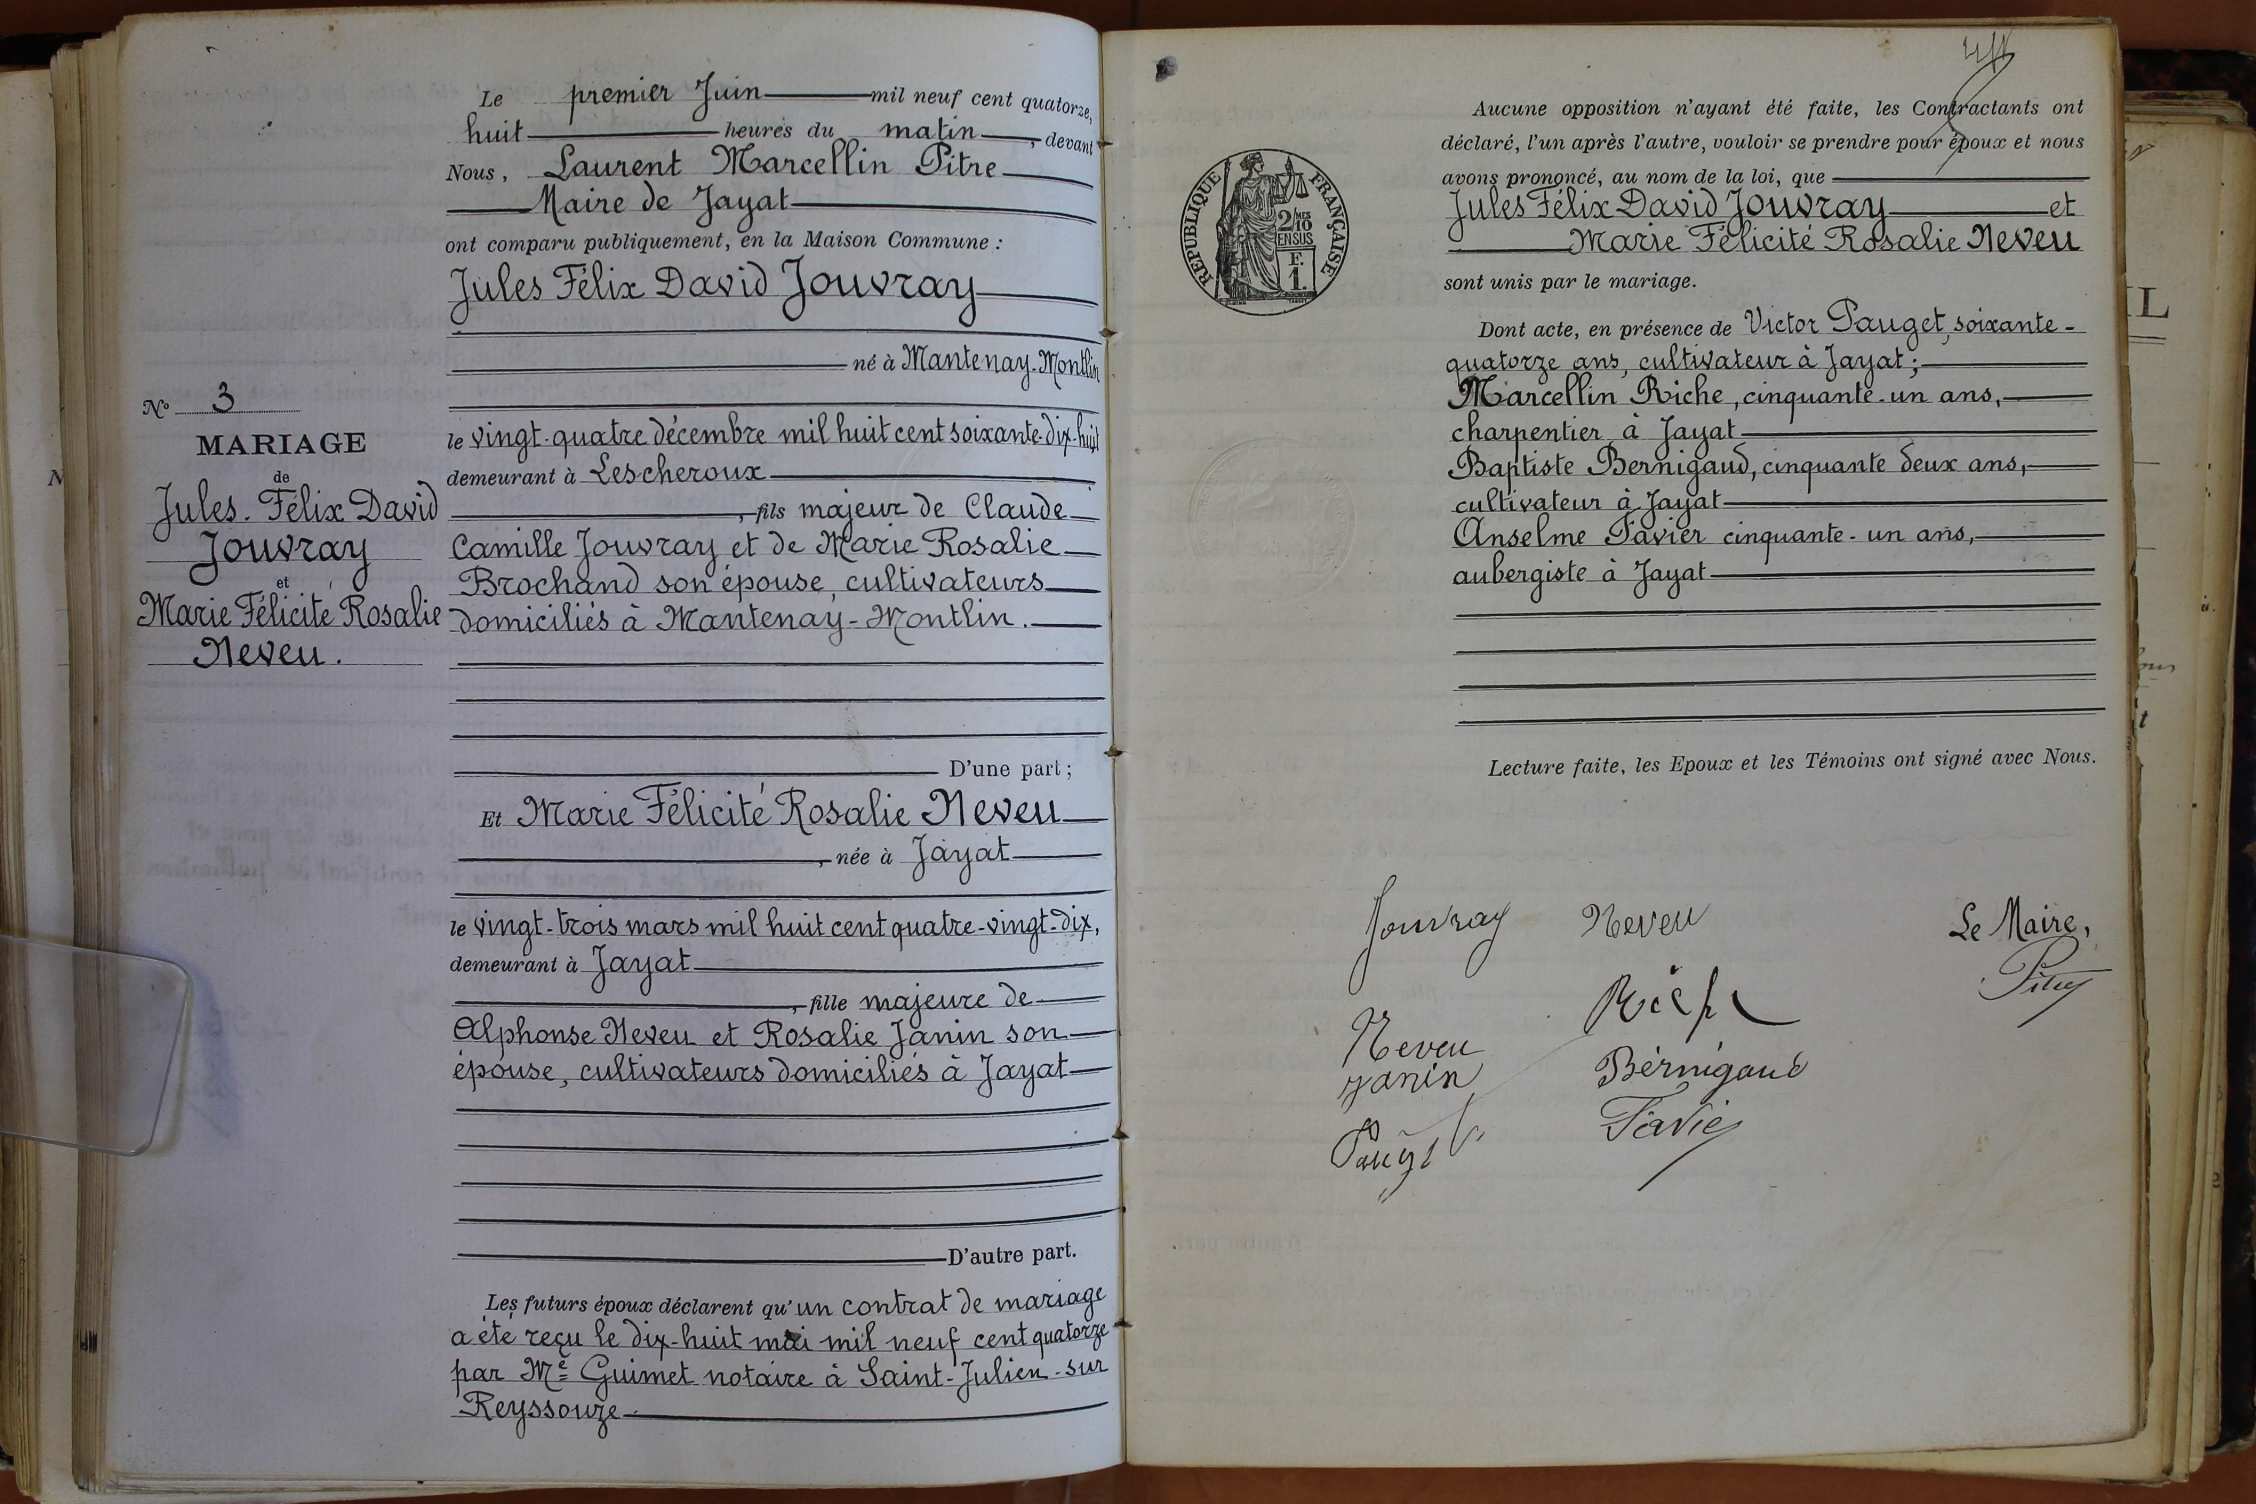 Le premier Juin mil neuf cent quatorze,
huit heures du matin, devant
Nous, Laurent Marcellin Pitre
Maire de Jayat
ont comparu publiquement, en la Maison Commune :
Jules Félix David Jouvray
né à Mantenay-Montlin
le vingt-quatre décembre mil huit cent soixante-dix-huit
demeurant à Lescheroux
, fils majeur de Claude
Camille Jouvray et de Marie Rosalie
Brochand son épouse, cultivateurs
domiciliés à Mantenay-Montlin.
D'une part ;
Et Marie Félicité Rosalie Neveu
, née à Jayat
le vingt-trois mars mil huit cent quatre-vingt-dix,
demeurant à Jayat
, fille majeure de
Alphonse Neveu et Rosalie Janin son
épouse, cultivateurs domiciliés à Jayat
D'autre part.
Les futurs époux déclarent qu'un contrat de mariage
a été reçu le dix-huit mai mil neuf cent quatorze
par Me Guimet notaire à Saint-Julien-sur
Reyssouze
No 3
MARIAGE
de
Jules. Félix David
Jouvray
et
Marie Félicité Rosalie
Neveu.
Aucune opposition n'ayant été faite, les Contractants ont
déclaré, l'un après l'autre, vouloir se prendre pour époux et nous
avons prononcé, au nom de la loi, que
Jules Félix David Jouvray et
Marie Félicité Rosalie Neveu
sont unis par le mariage.
Dont acte, en présence de Victor Pauget, soixante-
quatorze ans, cultivateur à Jayat ;
Marcellin Riche, cinquante-un ans,
charpentier à Jayat
Baptiste Bernigaud, cinquante deux ans,
cultivateur à Jayat
Anselme Favier cinquante-un ans,
aubergiste à Jayat
Lecture faite, les Epoux et les Témoins ont signé avec Nous.
Jouvray Neveu
Le Maire,
Pitre
Riche
Neveu
Janin
Bérnigaud
Favier
RÉPUBLIQUE FRANÇAISE
2/10 MES
EN SUS
F.
1.
IL